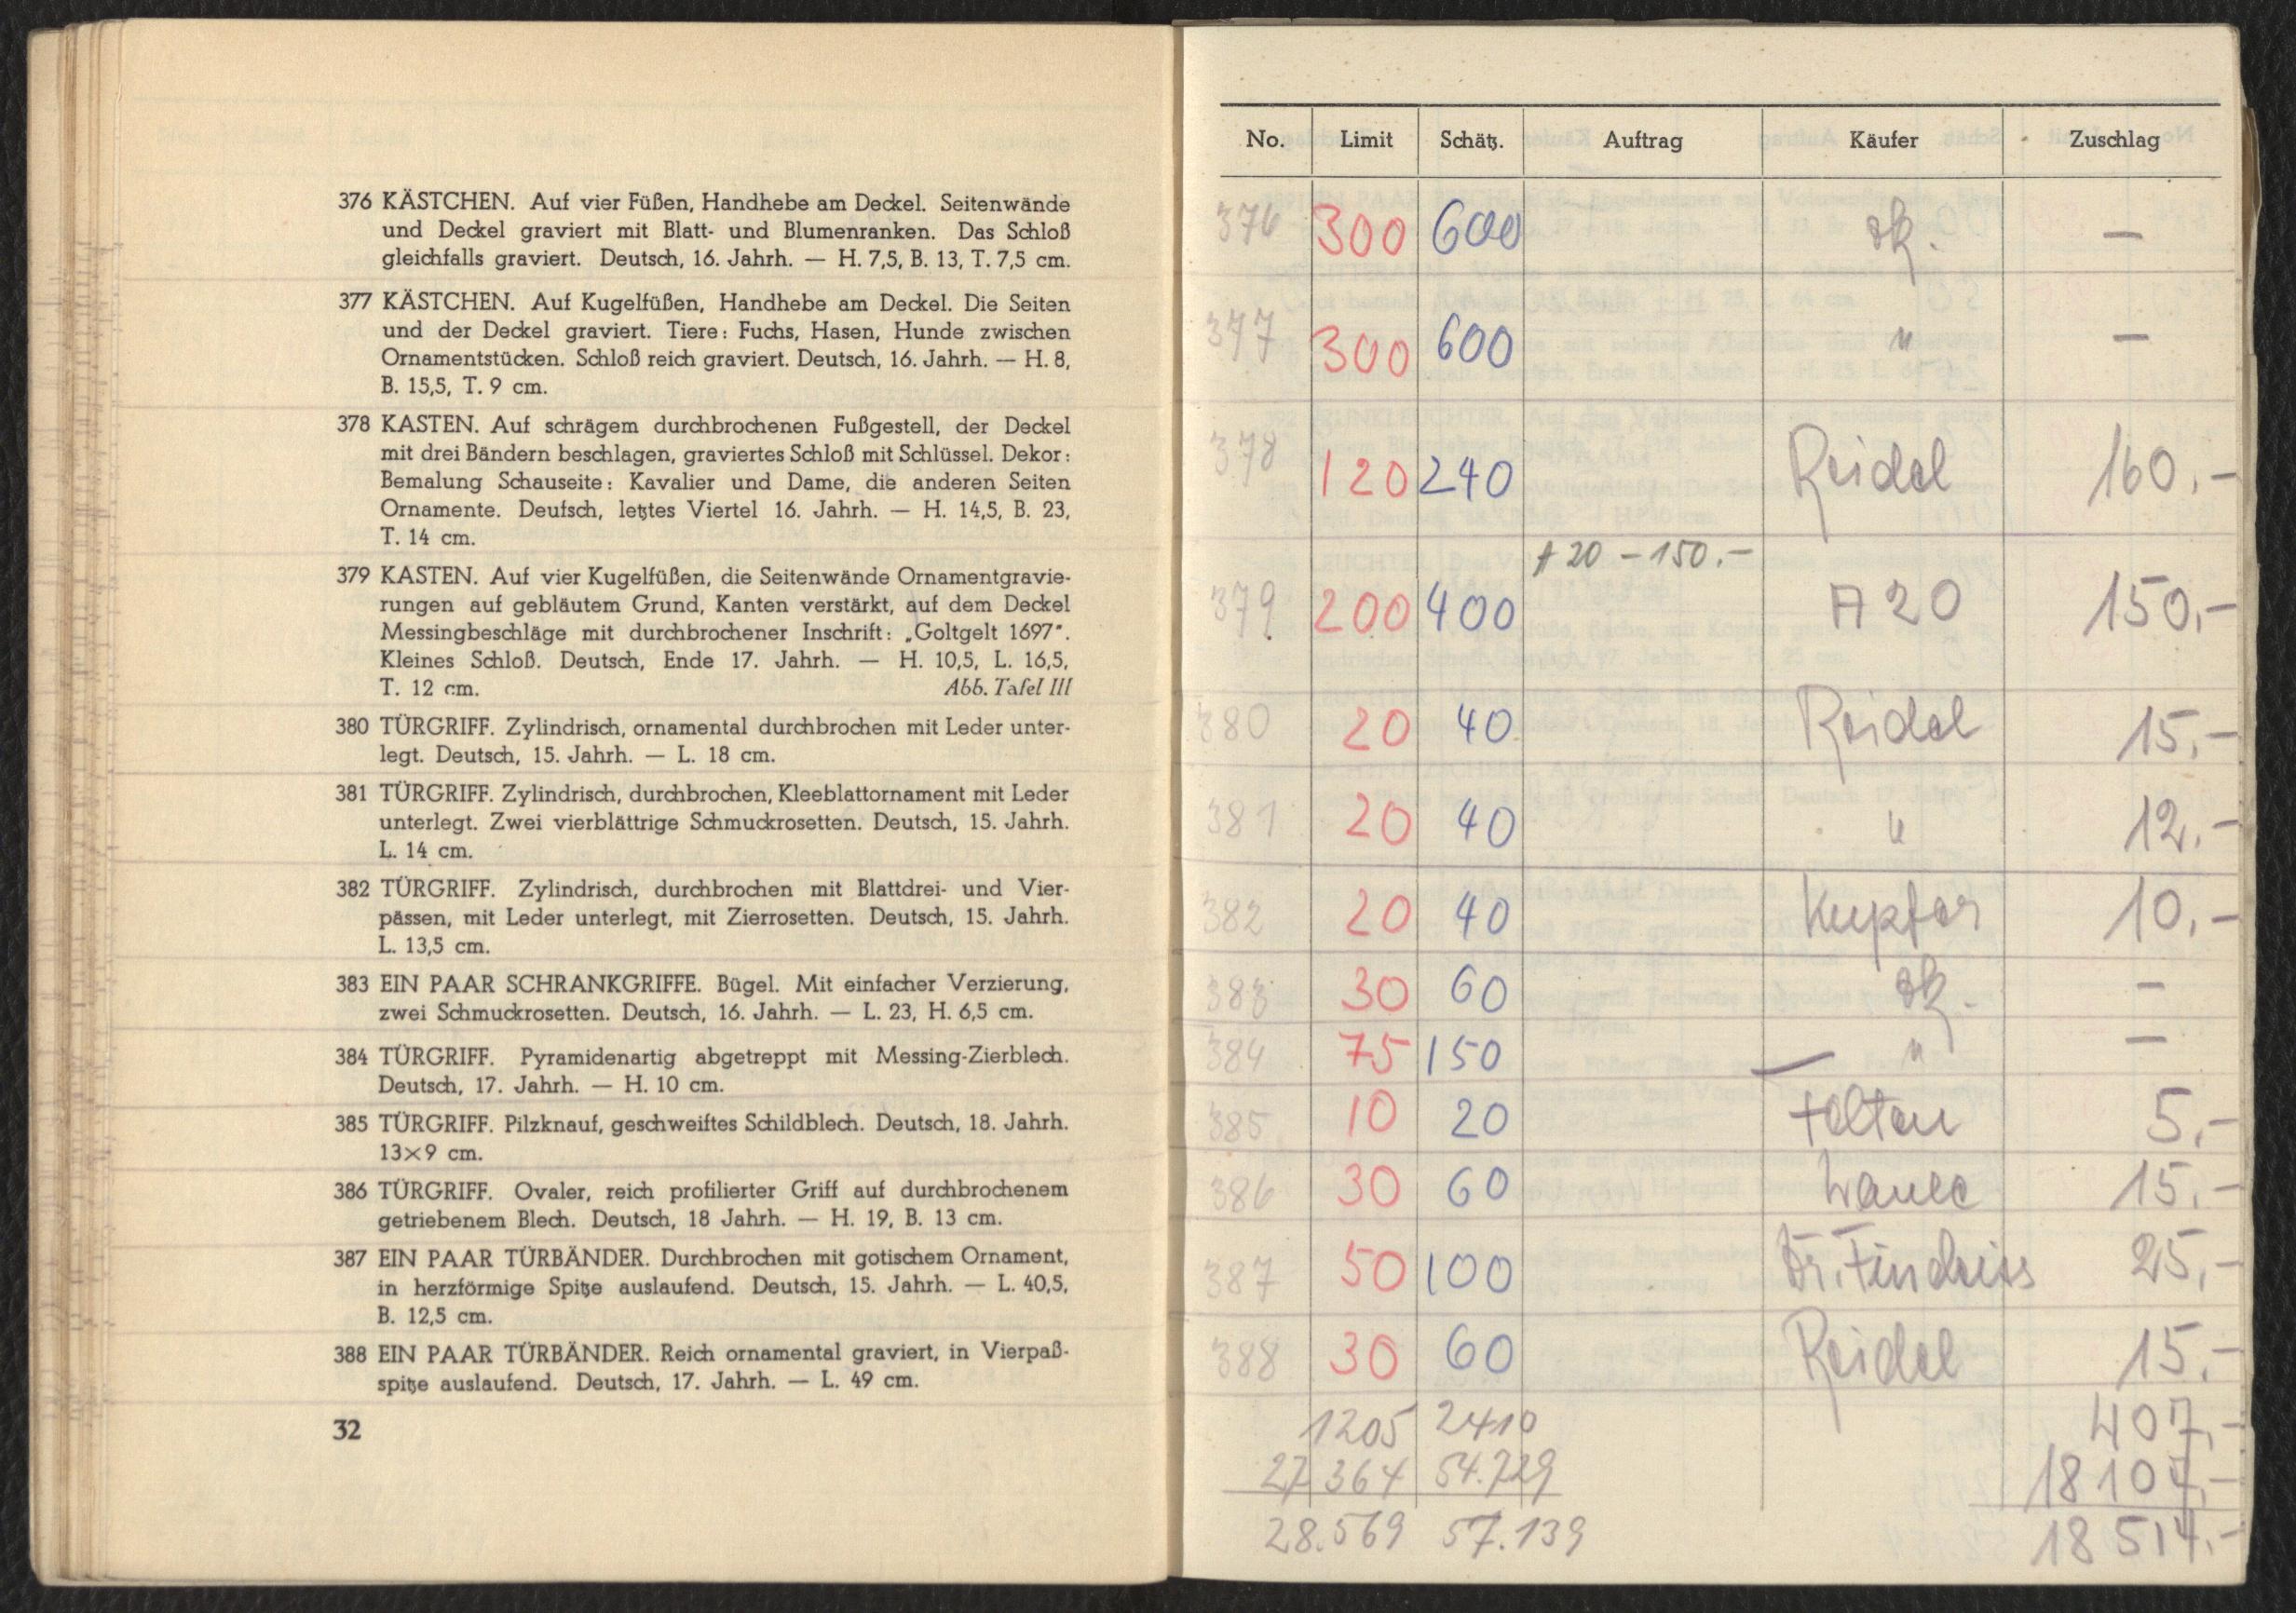 376 KÄSTCHEN. Auf vier Füßen, Handhebe am Deckel. Seitenwände
und Deckel graviert mit Blatt- und Blumenranken. Das Schloß
gleichfalls graviert. Deutsch, 16. Jahrh. — H. 7,5, B. 13, T. 7,5 cm.
377 KÄSTCHEN. Auf Kugelfüßen, Handhebe am Deckel. Die Seiten
und der Deckel graviert. Tiere: Fuchs, Hasen, Hunde zwischen
Ornamentstücken. Schloß reich graviert. Deutsch, 16. Jahrh. — H. 8,
B. 15,5, T. 9 cm.
378 KASTEN. Auf schrägem durchbrochenen Fußgestell, der Deckel
mit drei Bändern beschlagen, graviertes Schloß mit Schlüssel. Dekor:
Bemalung Schauseite: Kavalier und Dame, die anderen Seiten
Ornamente. Deutsch, letztes Viertel 16. Jahrh. — H. 14,5, B. 23,
T. 14 cm.
379 KASTEN. Auf vier Kugelfüßen, die Seitenwände Ornamentgravie-
rungen auf gebläutem Grund, Kanten verstärkt, auf dem Deckel
Messingbeschläge mit durchbrochener Inschrift: „Goltgelt 1697".
Kleines Schloß. Deutsch, Ende 17. Jahrh. — H. 10,5, L. 16,5,
T. 12 cm. Abb. Tafel III
380 TÜRGRIFF. Zylindrisch, ornamental durchbrochen mit Leder unter-
legt. Deutsch, 15. Jahrh. — L. 18 cm.
381 TÜRGRIFF. Zylindrisch, durchbrochen, Kleeblattornament mit Leder
unterlegt. Zwei vierblättrige Schmuckrosetten. Deutsch, 15. Jahrh.
L. 14 cm.
382 TÜRGRIFF. Zylindrisch, durchbrochen mit Blattdrei- und Vier-
pässen, mit Leder unterlegt, mit Zierrosetten. Deutsch, 15. Jahrh.
L. 13,5 cm.
383 EIN PAAR SCHRANKGRIFFE. Bügel. Mit einfacher Verzierung,
zwei Schmuckrosetten. Deutsch, 16. Jahrh. — L. 23, H. 6,5 cm.
384 TÜRGRIFF. Pyramidenartig abgetreppt mit Messing-Zierblech.
Deutsch, 17. Jahrh. — H. 10 cm.
385 TÜRGRIFF. Pilzknauf, geschweiftes Schildblech. Deutsch, 18. Jahrh.
13×9 cm.
386 TÜRGRIFF. Ovaler, reich profilierter Griff auf durchbrochenem
getriebenem Blech. Deutsch, 18 Jahrh. — H. 19, B. 13 cm.
387 EIN PAAR TÜRBÄNDER. Durchbrochen mit gotischem Ornament,
in herzförmige Spitze auslaufend. Deutsch, 15. Jahrh. — L. 40,5,
B. 12,5 cm.
388 EIN PAAR TÜRBÄNDER. Reich ornamental graviert, in Vierpaß-
spitze auslaufend. Deutsch, 17. Jahrh. — L. 49 cm.
32
No. Limit Schätz. Auftrag Käufer Zuschlag
376 300 600 —
377 300 600 " —
378 120 240 Reidel 160.-
A 20 - 150.-
379 200 400 A 20 150.-
380 20 40 Reidel 15.-
381 20 40 " 12.-
382 20 40 Kupfer 10.-
383 30 60 —
384 75 150 " —
385 10 20 Folten 5.-
386 30 60 15.-
387 50 100 25.-
388 30 60 Reidel 15.-
1205 2410 407.-
27 364 54.729 18 107.-
28.569 57.139 18 514.-